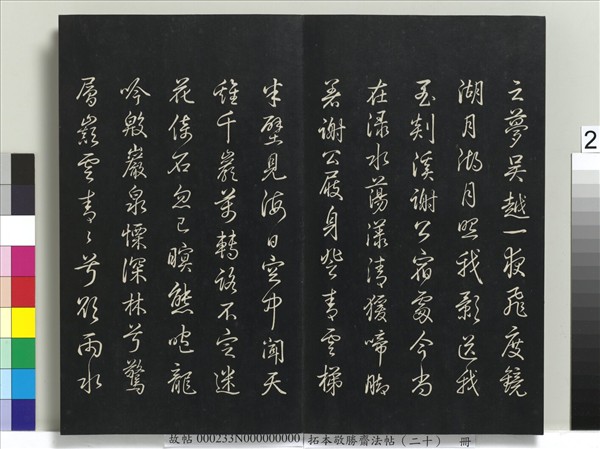 之夢吳越一夜飛度鏡
湖月湖月照我影送我
至剡溪謝公宿處今尚
在淥水蕩漾清猿啼腳
著謝公屐身登青雲梯
半壁見海日空中聞天
雞千巖萬轉路不定迷
花倚石忽已暝熊咆龍
吟殷巖泉慄深林兮驚
層巔雲青々兮欲雨水
故帖 000233N000000000 拓本敬勝齋法帖（二十） 冊
2